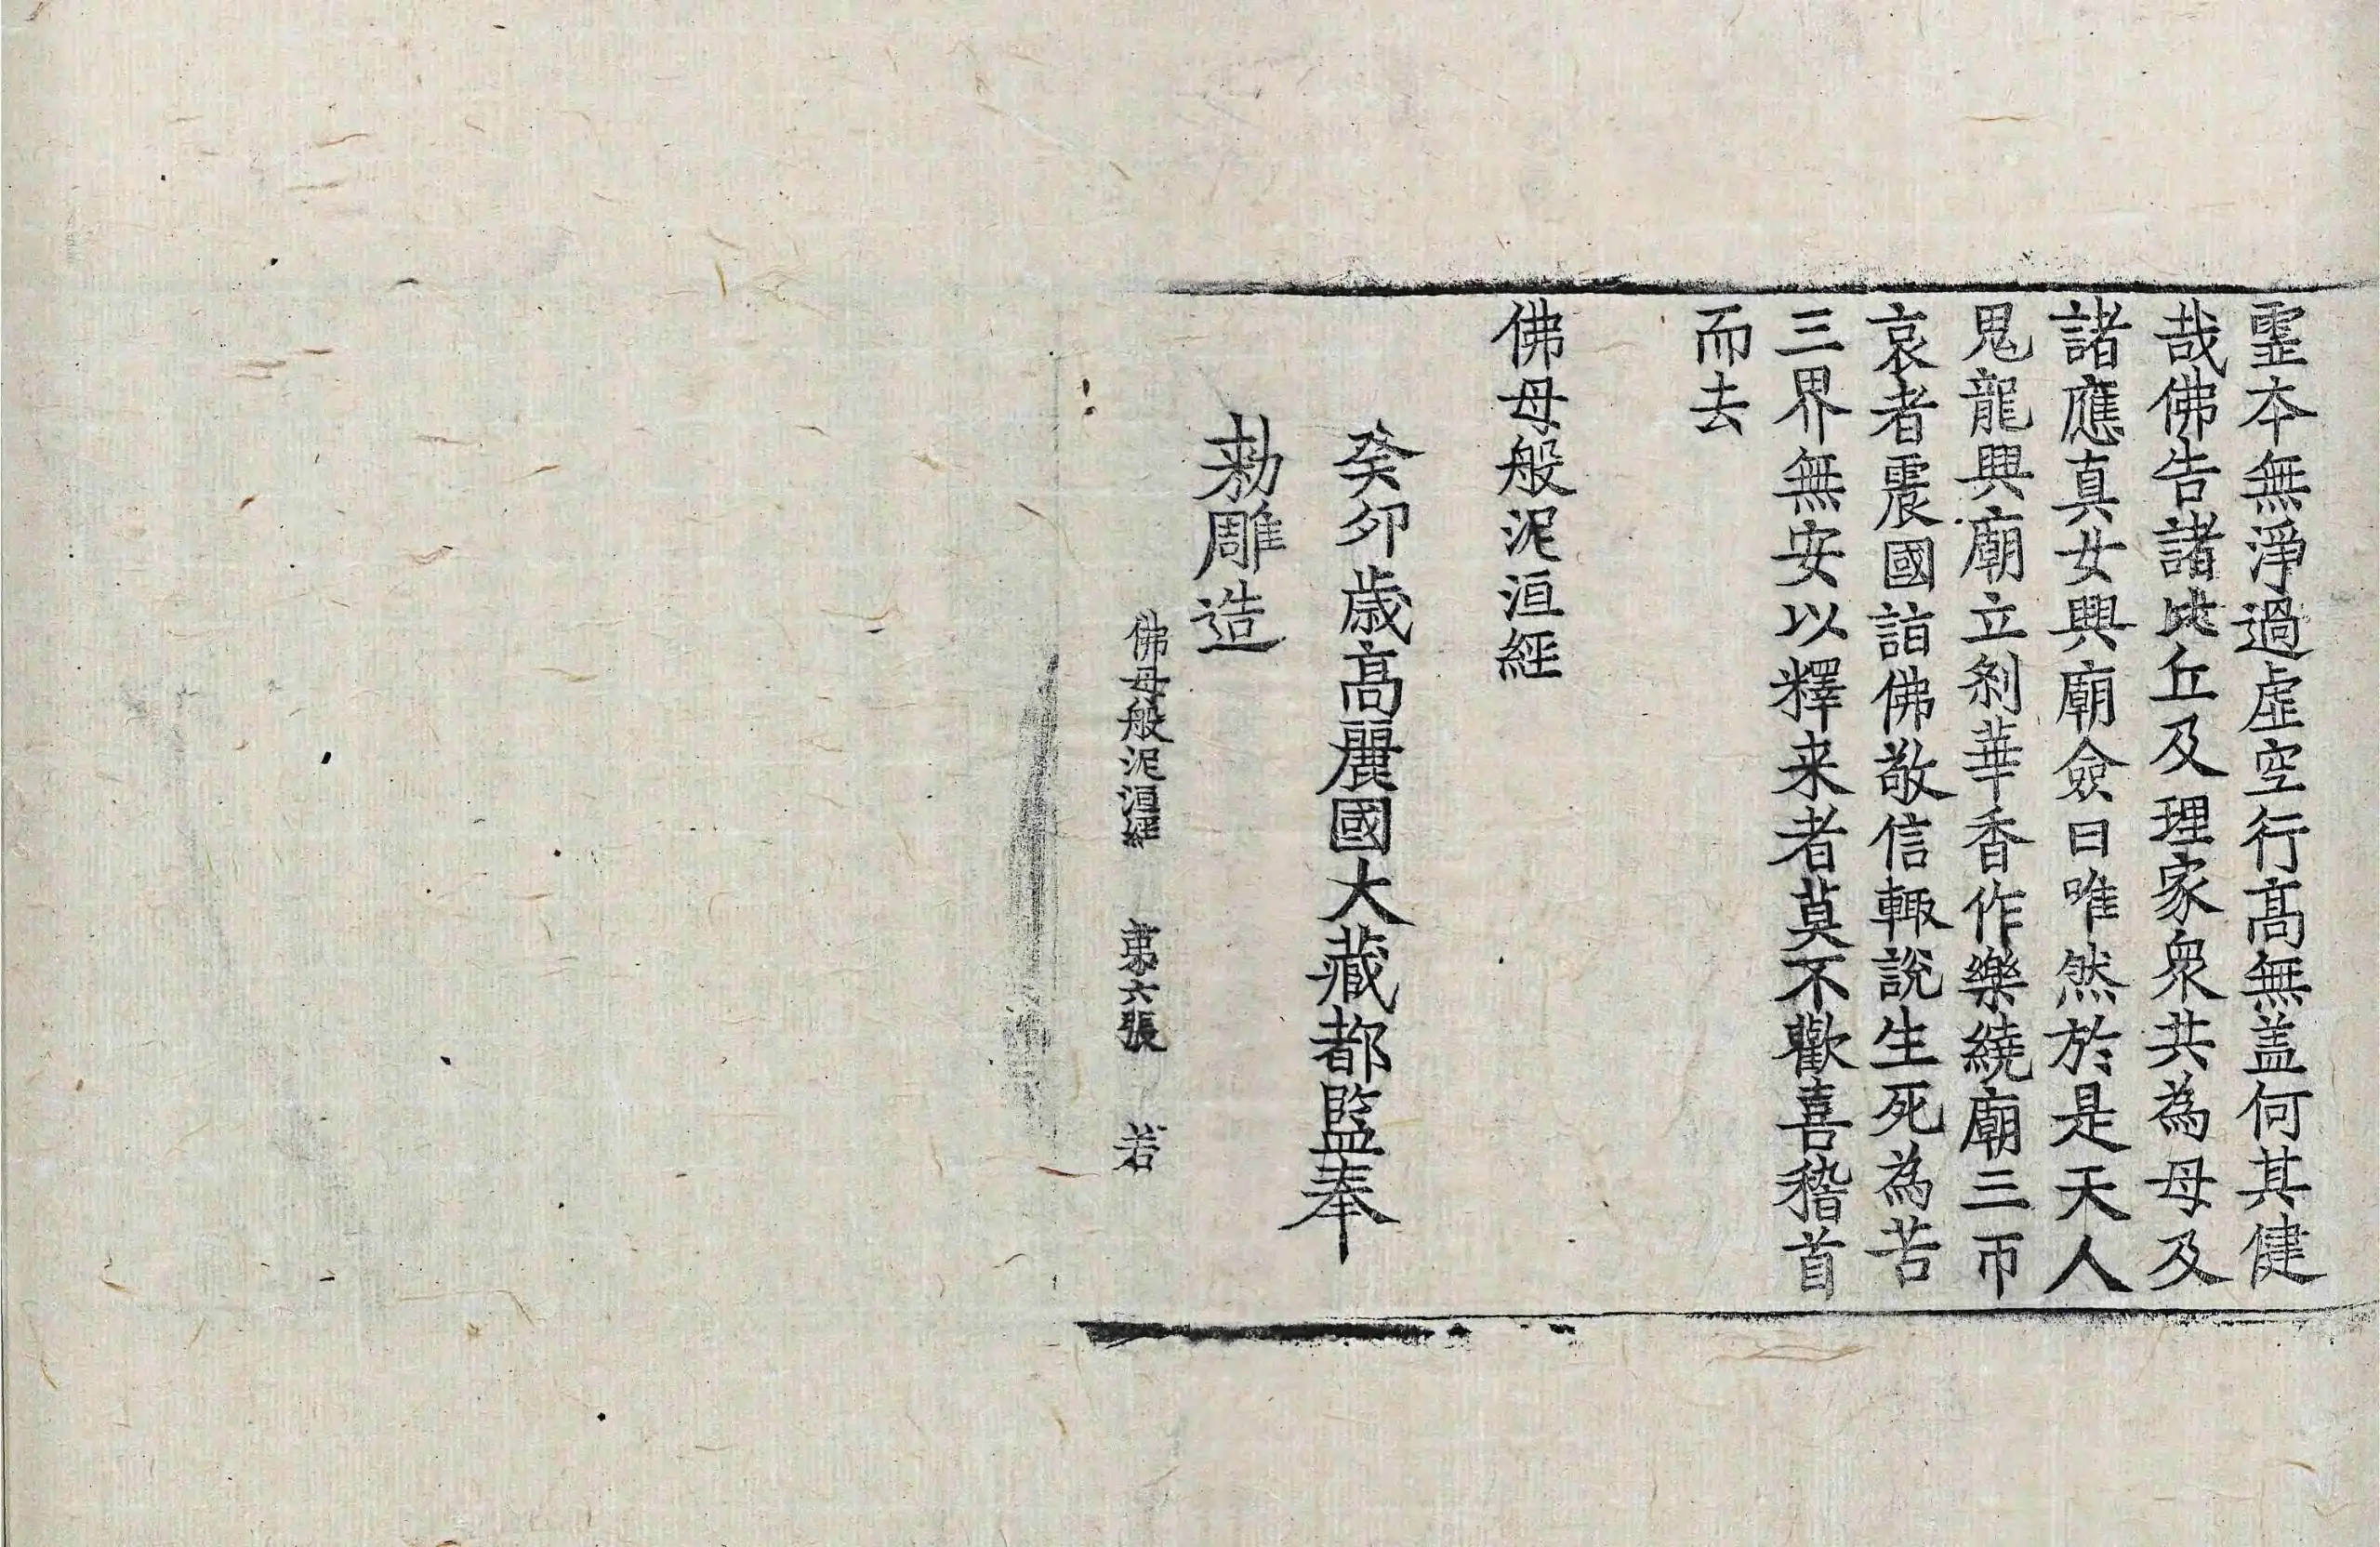 霊本無淨過虛空行髙無盖何其健
哉佛告諸比丘及理家衆共為母及
諸應真女興廟僉曰唯然於是天人
鬼龍興廟立刹華香作樂繞廟三帀
哀者震國詣佛敬信輙說生死為苦
三界無安以釋来者莫不歡喜稽首
而去
佛母般泥洹經
癸卯歳髙麗國大藏都監奉
勑雕造
佛母般泥洹經 第六張 若